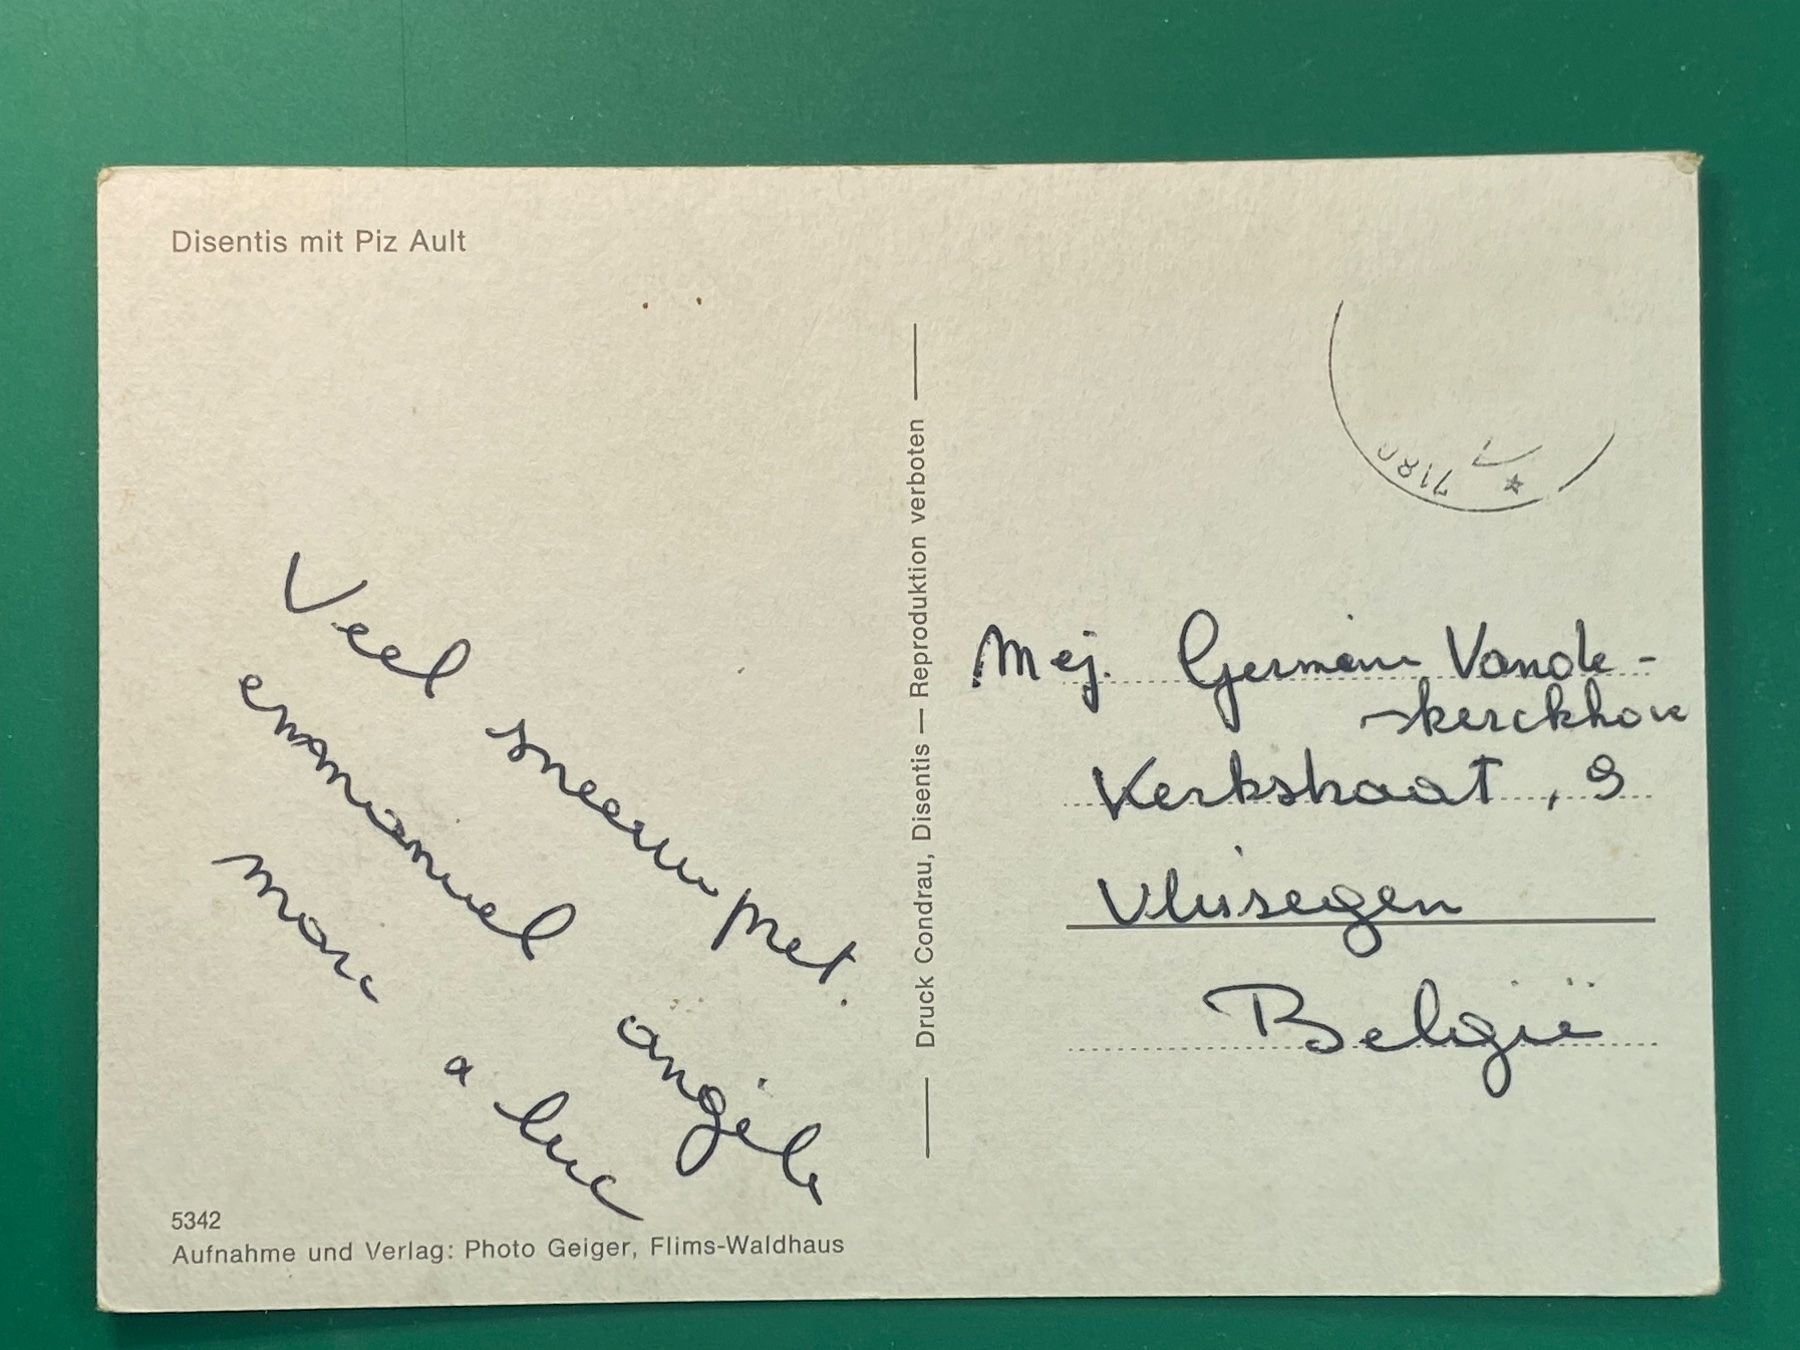 Disentis mit Piz Ault
Veel sneeuwpret.
emmanuel
marc
angèle
a luc
5342
Aufnahme und Verlag: Photo Geiger, Flims-Waldhaus
Druck Condrau, Disentis — Reproduktion verboten
7180
Mej. Germaine Vande-
kerckhove
Kerkstraat, 9
Vlissegem
België